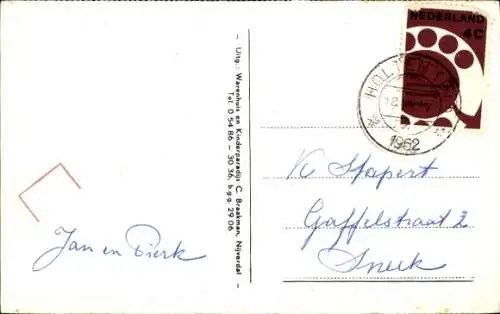 NEDERLAND
4C
HOLTEN
1962
– Uitg.: Warenhuis en Kinderparadijs C. Braakman, Nijverdal –
Tel. 0 54 86 - 30 36, b.g.g. 29 06
K Stapert
Gaffelstraat 2
Sneek
Jan en Dierk